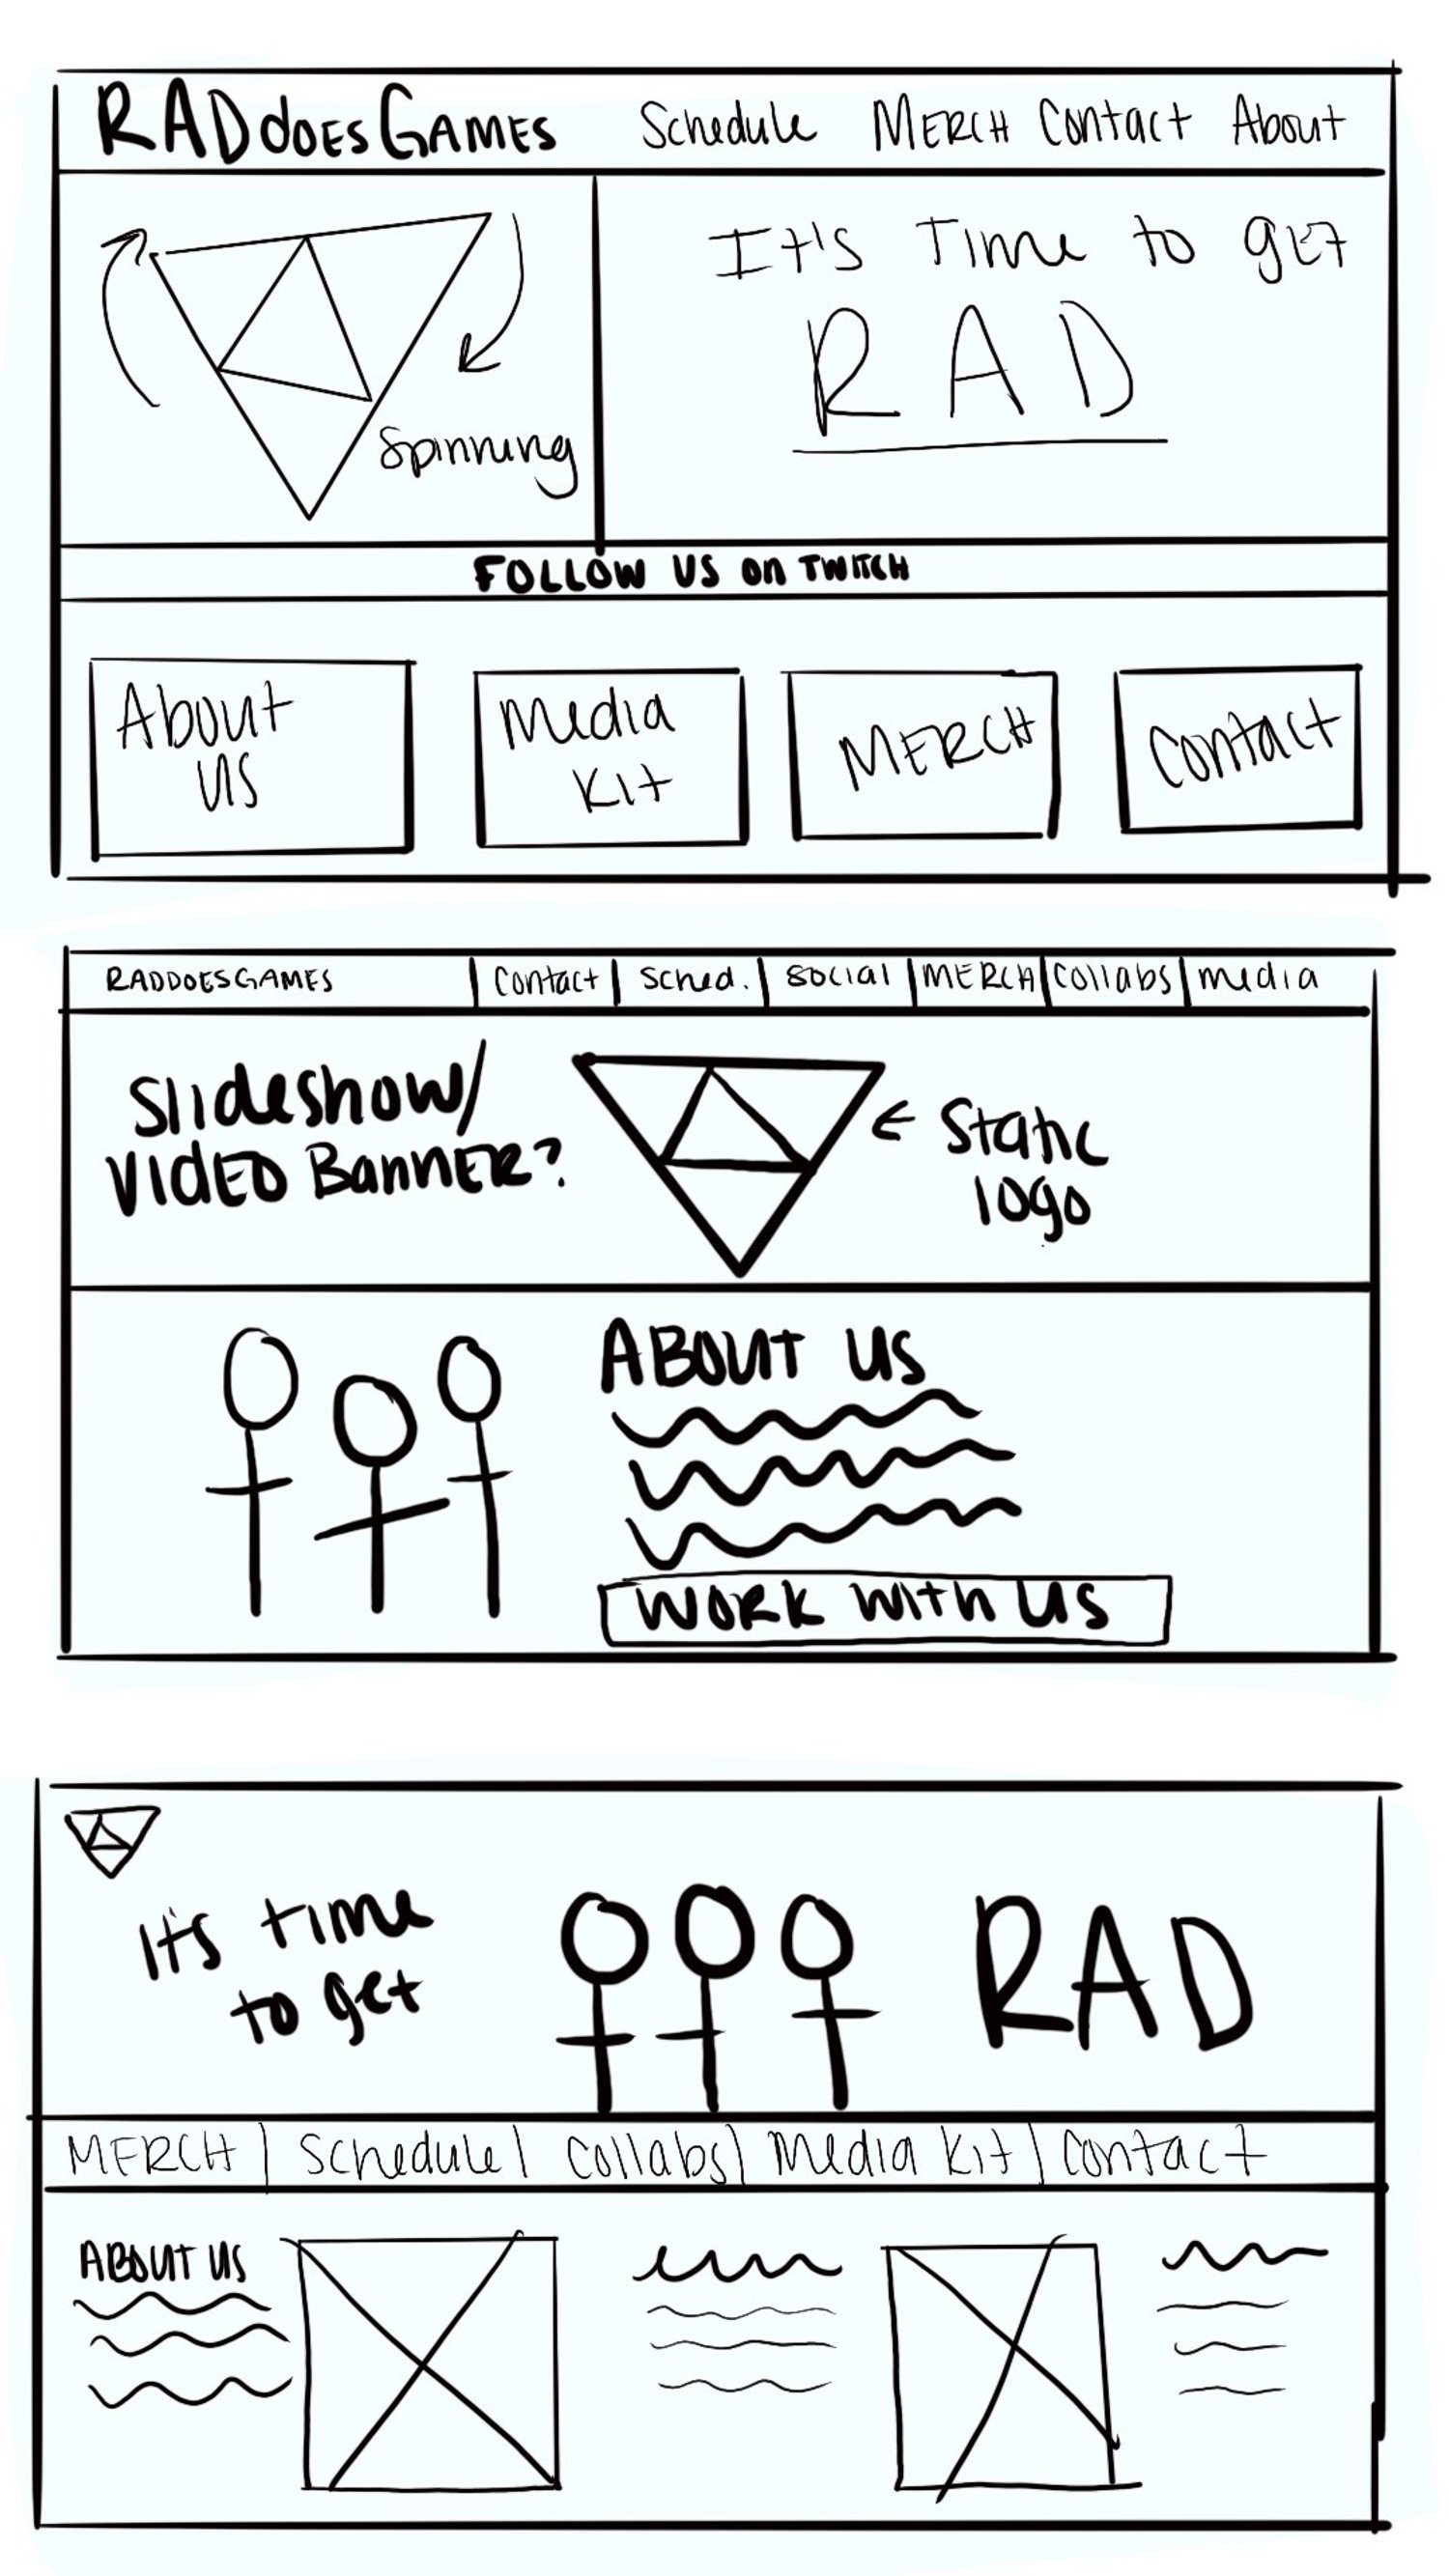 RADdOESGAMES Schedule MERCH Contact About
It's Time to gET
RAD
Spinning
FOLLOW US On TWITCH
About
US
Media
Kit
MERCH
Contact
RADDOESGAMES Contact | Sched. | Social | MERCH | Collabs | Media
Slideshow/
VIdEO BannER?
← Static
logo
ABOUT US
WORK WITH US
It's time
to get
RAD
MERCH | Schedule | Collabs | Media Kit | Contact
ABOUT US